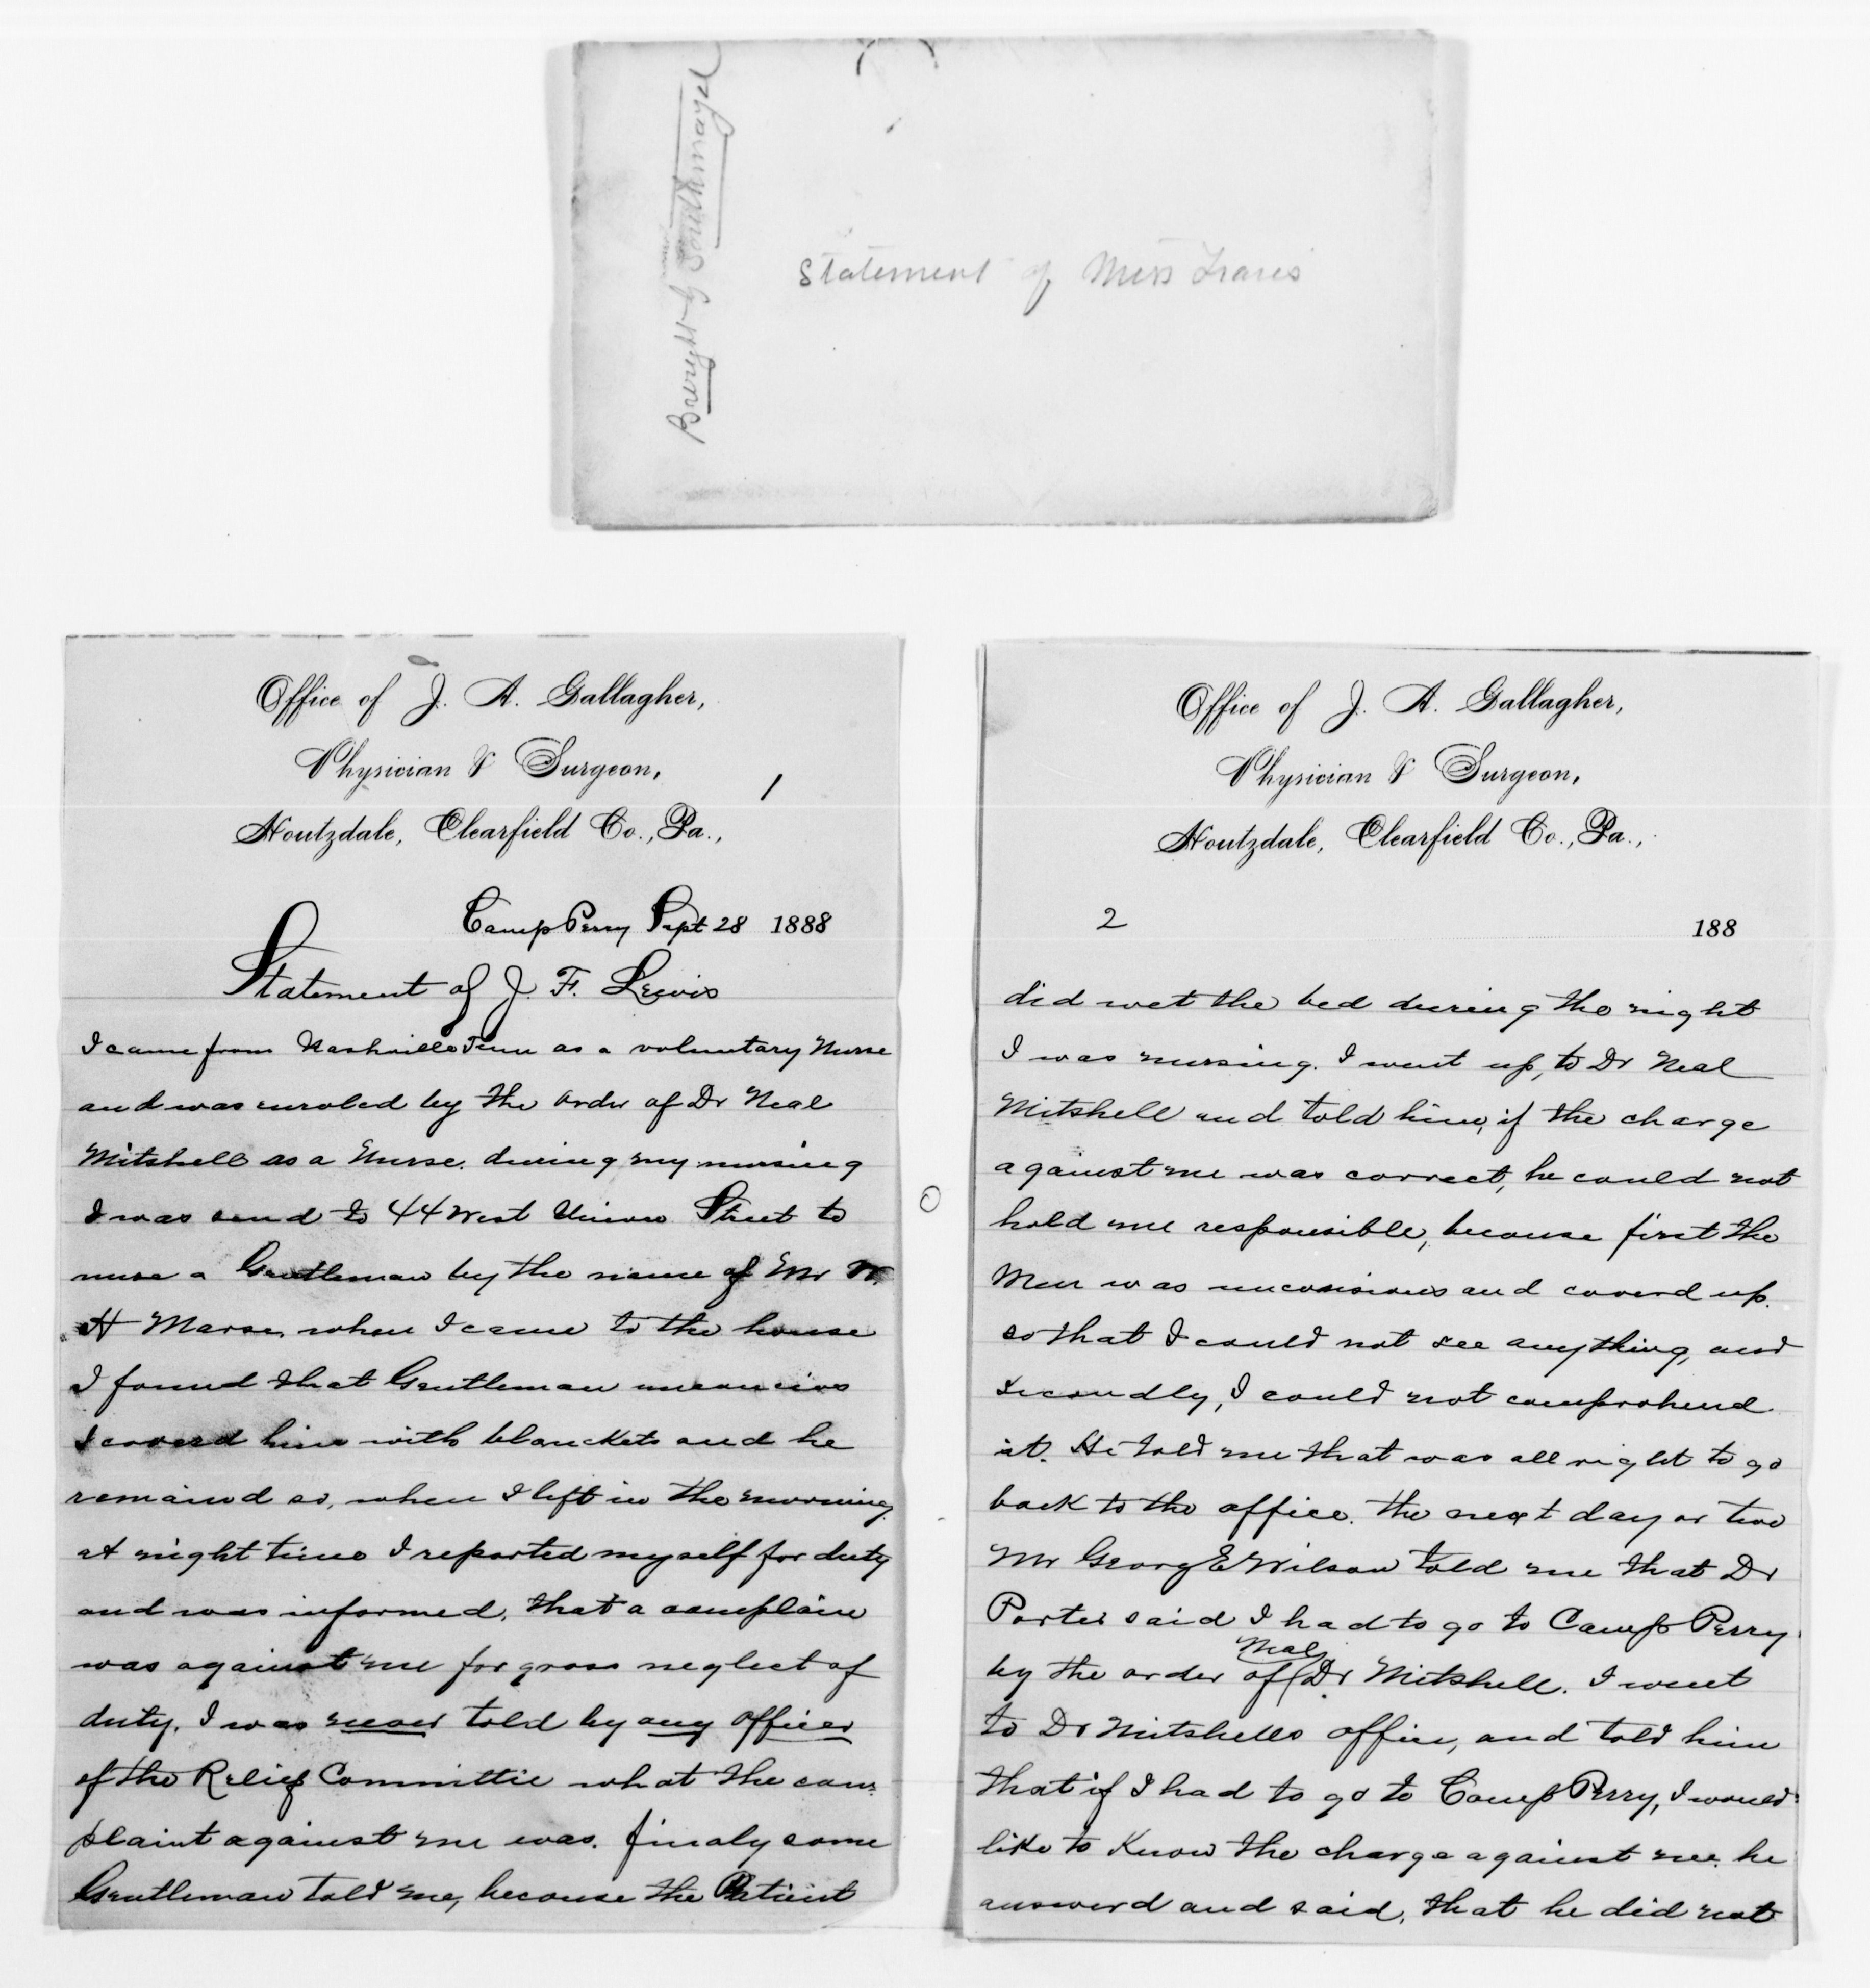 Statement of Miss Travis
Brought by Southmayd
Office of J. A. Gallagher,
Physician & Surgeon,
1
Houtzdale, Clearfield Co., Pa.,
Camp Perry Sept 28 1888
Statement of J. F. Lewis
I came from Nashville Tenn as a voluntary Nurse
and was enroled by the order of Dr Neal
Mitshell as a Nurse. during my nursing
I was send to 44 West Union Street to
nurse a Gentleman by the name of Mr W.
H Marse, when I came to the house
I found that Gentleman unconcious
I coverd him with blanckets and he
remaind so, when I left in the morning.
at night time I reported myself for duty
and was informed, that a complain
was against me for gross neglect of
duty. I was never told by any officer
of the Relief Committie what the com-
plaint against me was. finaly some
Gentleman told me, because the Patient
Office of J. A. Gallagher,
Physician & Surgeon,
Houtzdale, Clearfield Co., Pa.,
2 188
did wet the bed during the night
I was nursing. I went up, to Dr Neal
Mitshell and told him, if the charge
against me was correct, he could not
hold me responsible, because first the
Man was unconsious and coverd up.
so that I could not see anything, and
secondly, I could not comprehend
it. He told me that was all right to go
back to the office. the next day or two
Mr Georg E Wilson told me that Dr
Porter said I had to go to Camp Perry
by the order of Neal Dr Mitshell. I went
to Dr Mitshells office, and told him
that if I had to go to Camp Perry, I would
like to Know the charge against me. he
answerd and said, that he did not